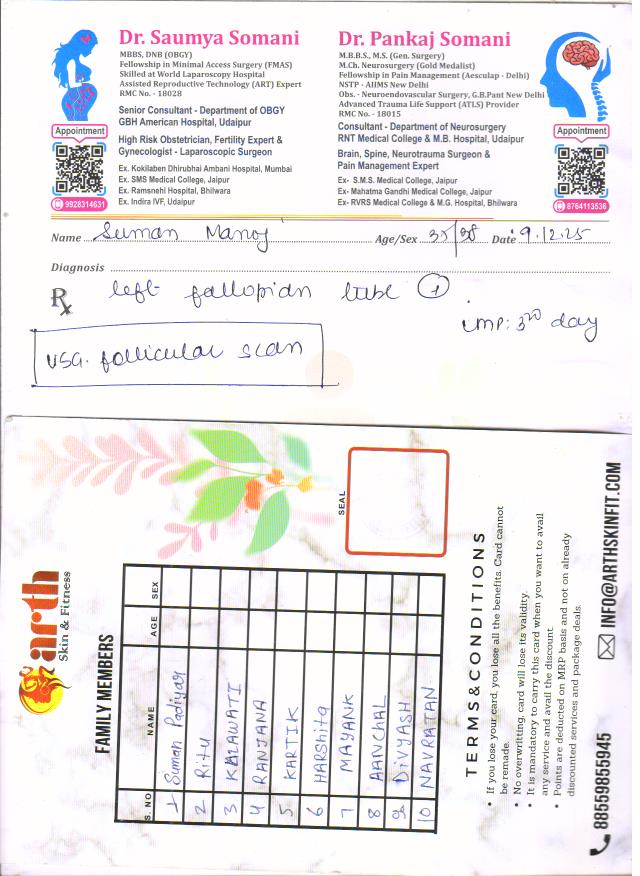 Dr. Saumya Somani
MBBS, DNB (OBGY)
Fellowship in Minimal Access Surgery (FMAS)
Skilled at World Laparoscopy Hospital
Assisted Reproductive Technology (ART) Expert
RMC No. - 18028
Senior Consultant - Department of OBGY
GBH American Hospital, Udaipur
High Risk Obstetrician, Fertility Expert &
Gynecologist - Laparoscopic Surgeon
Ex. Kokilaben Dhirubhai Ambani Hospital, Mumbai
Ex. SMS Medical College, Jaipur
Ex. Ramsnehi Hospital, Bhilwara
Ex. Indira IVF, Udaipur
Appointment
9928314631
Dr. Pankaj Somani
M.B.B.S., M.S. (Gen. Surgery)
M.Ch. Neurosurgery (Gold Medalist)
Fellowship in Pain Management (Aesculap - Delhi)
NSTP - AIIMS New Delhi
Obs. - Neuroendovascular Surgery, G.B.Pant New Delhi
Advanced Trauma Life Support (ATLS) Provider
RMC No. - 18015
Consultant - Department of Neurosurgery
RNT Medical College & M.B. Hospital, Udaipur
Brain, Spine, Neurotrauma Surgeon &
Pain Management Expert
Ex- S.M.S. Medical College, Jaipur
Ex- Mahatma Gandhi Medical College, Jaipur
Ex- RVRS Medical College & M.G. Hospital, Bhilwara
Appointment
8764113536
Name Suman Manoj Age/Sex Date 9.12.25
Diagnosis
Rx left fallopian tube
LMP: 3rd day
USG. follicular scan
arth
Skin & Fitness
FAMILY MEMBERS
S. NO NAME AGE SEX
1 Suman Padiyar
2 Ritu
3 KALAWATI
4 RANJANA
5 KARTIK
6 HARSHITA
7 MAYANK
8 AANCHAL
9 DIVYASH
10 NAVRATAN
SEAL
TERMS & CONDITIONS
• If you lose your card, you lose all the benefits. Card cannot
be remade.
• No overwritting, card will lose its validity.
• It is mandatory to carry this card when you want to avail
any service and avail the discount.
• Points are deducted on MRP basis and not on already
discounted services and package deals.
88559855945
INFO@ARTHSKINFIT.COM